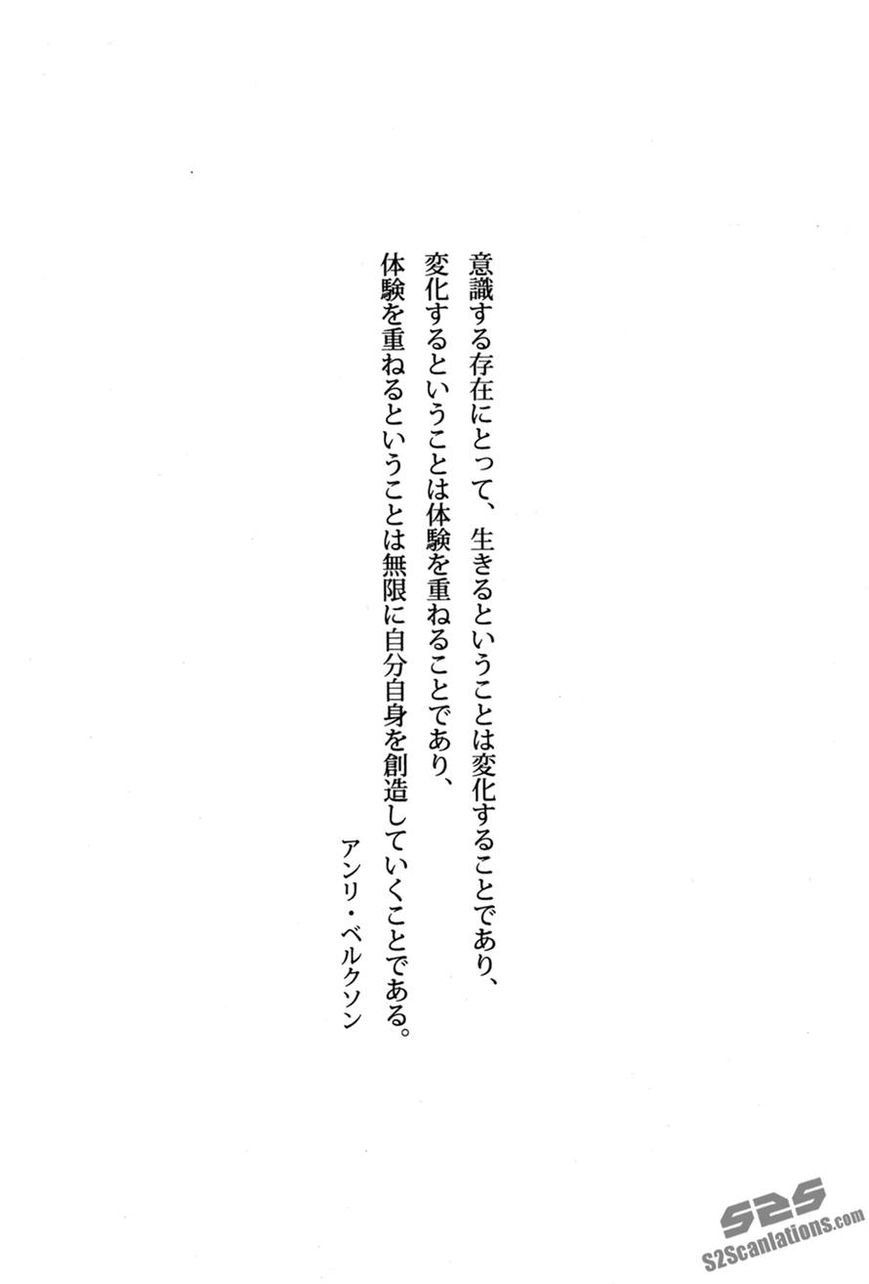 意識する存在にとって、生きるということは変化することであり、
変化するということは体験を重ねることであり、
体験を重ねるということは無限に自分自身を創造していくことである。
アンリ・ベルクソン
S2S
S2Scanlations.com